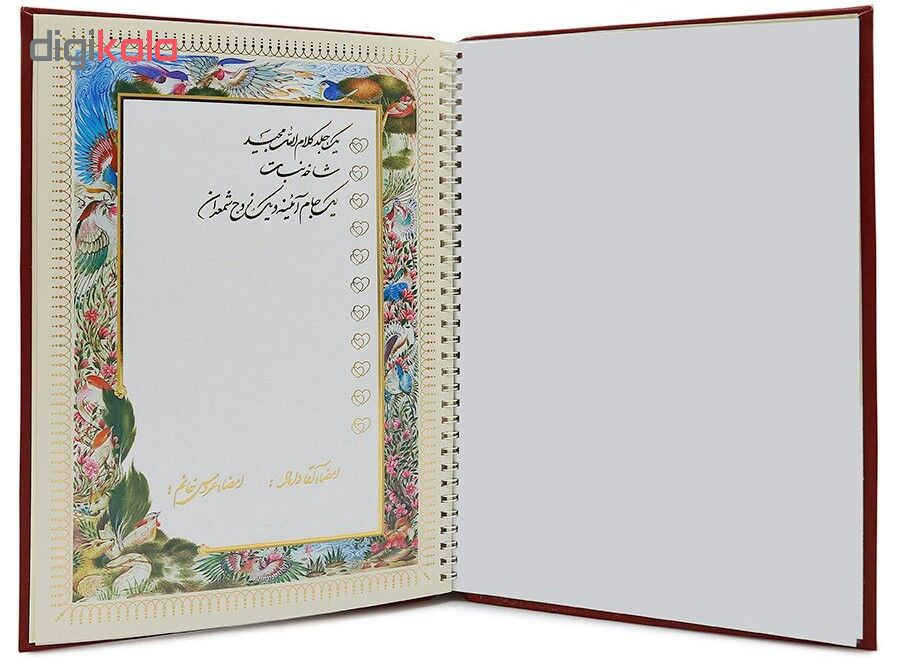 digikala
یک جلد کلام الله مجید
شاخه نبات
یک جام آئینه و یک زوج شمعدان
امضاء آقا داماد : امضاء عروس خانم :